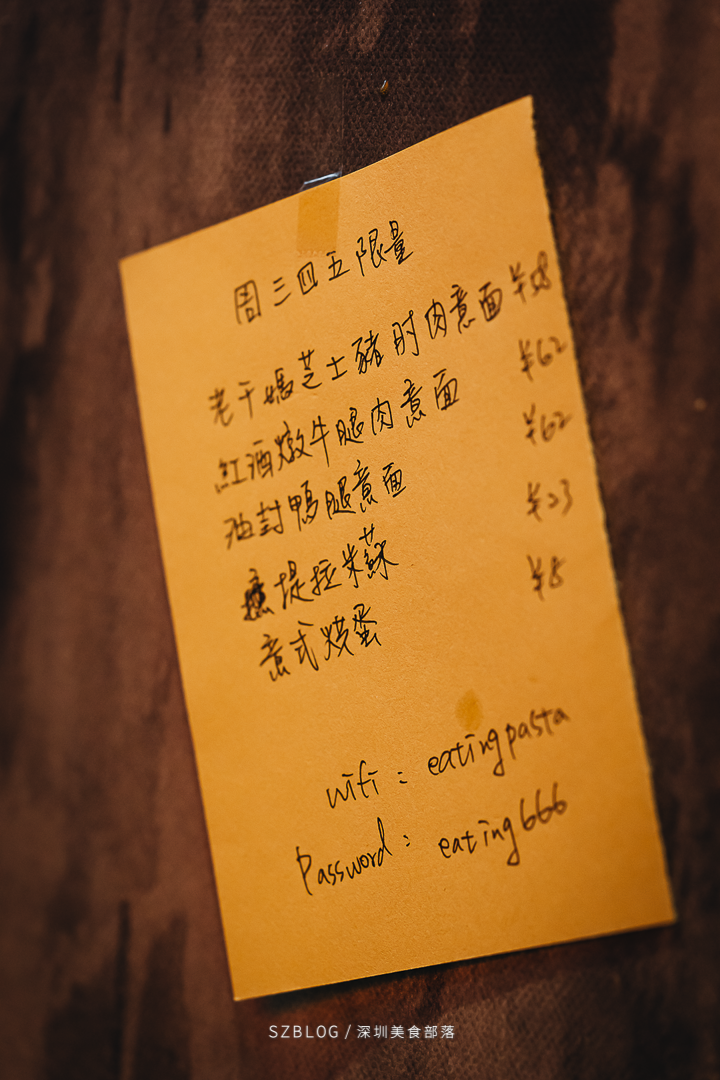 周三四五限量
老干媽芝士豬肘肉意面 ¥58
紅酒燉牛腿肉意面 ¥62
油封鴨腿意面 ¥62
堤拉米蘇 ¥23
意式烘蛋 ¥8
wifi : eatingpasta
Password : eating666
SZBLOG / 深圳美食部落